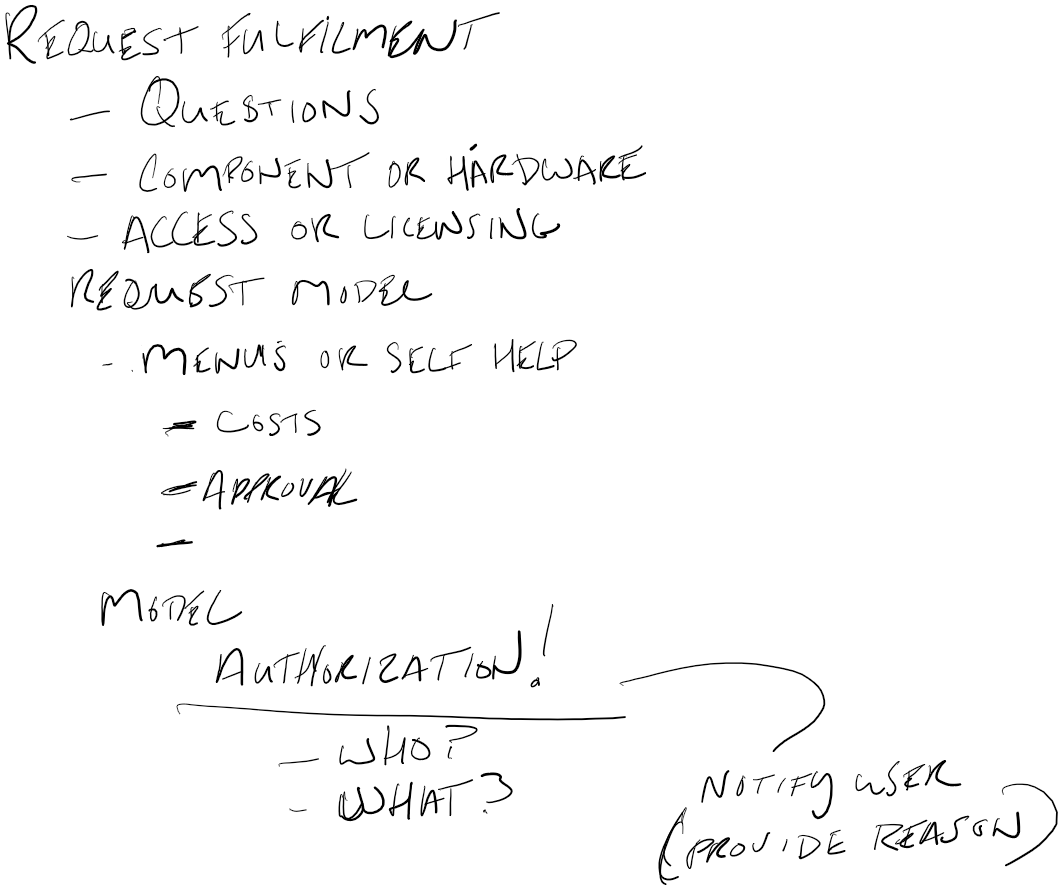 REQUEST FULFILMENT
- QUESTIONS
- COMPONENT OR HARDWARE
- ACCESS OR LICENSING
REQUEST MODEL
- MENUS OR SELF HELP
- COSTS
- APPROVAL
-
MODEL
AUTHORIZATION!
- WHO?
- WHAT?
NOTIFY USER
(PROVIDE REASON)